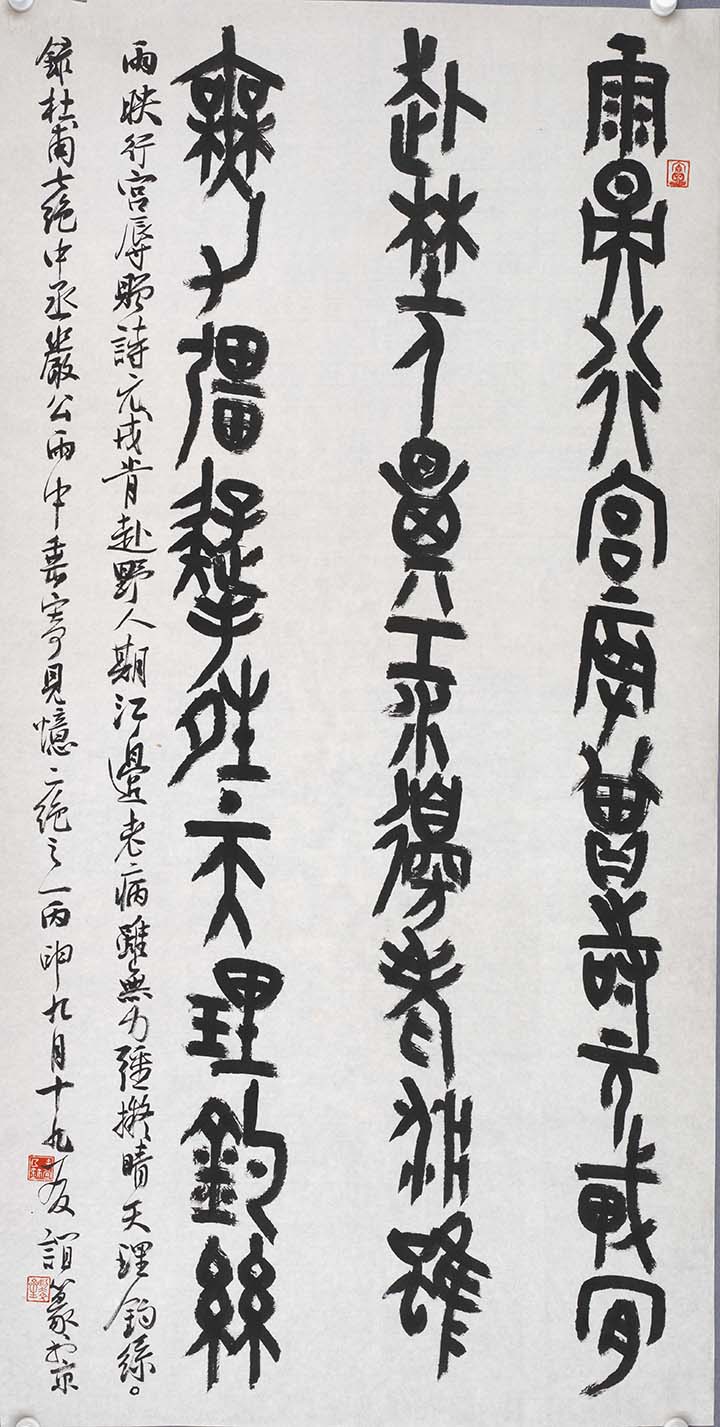 雨映行宮辱贈詩元戎肯
赴野人期江邊老病雖
無力彊擬晴天理釣絲
雨映行宮辱贈詩元戎肯赴野人期江邊老病雖無力强擬晴天理釣絲。
錄杜甫七絕中丞嚴公雨中垂寄見憶二絕之一丙申九月十九友誼篆於京